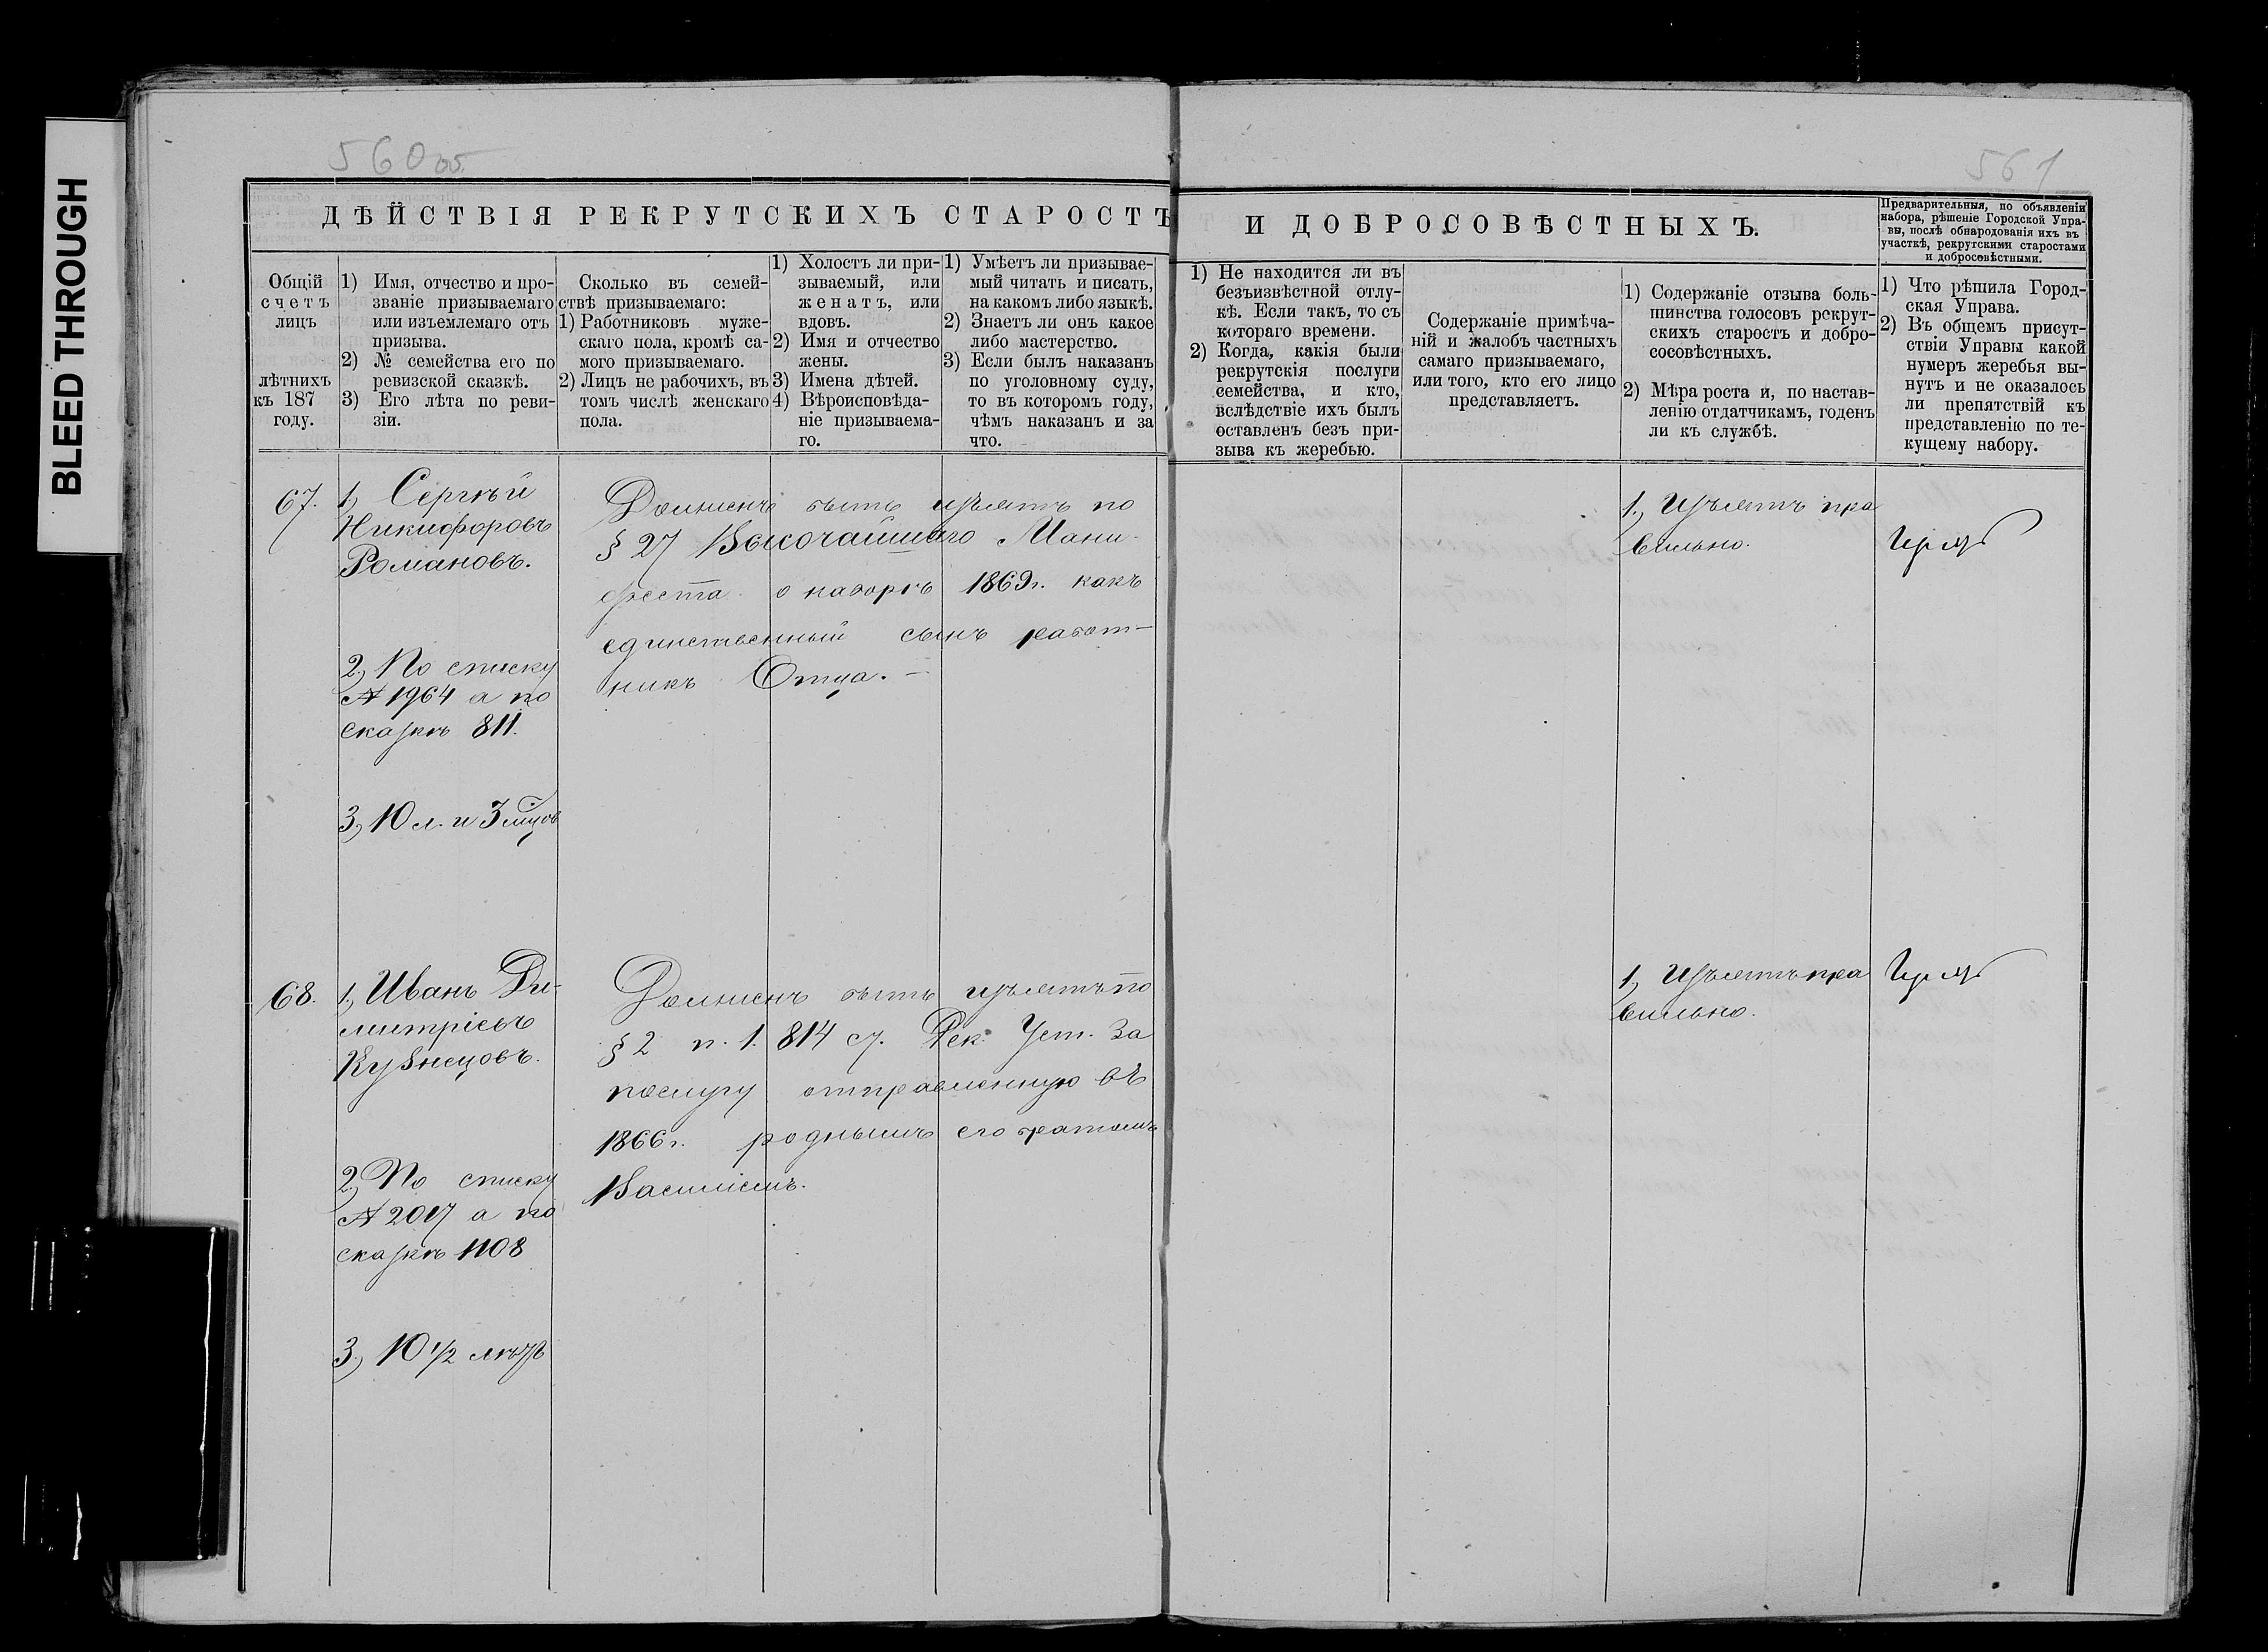 BLEED THROUGH
560 об.
561
ДѢЙСТВІЯ РЕКРУТСКИХЪ СТАРОСТЪ И ДОБРОСОВѢСТНЫХЪ.
Предварительныя, по объявленіи
набора, рѣшеніе Городской Упра-
вы, послѣ обнародованія ихъ въ
участкѣ, рекрутскими старостами
и добросовѣстными.
Общій
счетъ
лицъ
лѣтнихъ
къ 187
году.
1) Имя, отчество и про-
званіе призываемаго
или изъемлемаго отъ
призыва.
2) № семейства его по
ревизской сказкѣ.
3) Его лѣта по реви-
зіи.
Сколько въ семей-
ствѣ призываемаго:
1) Работниковъ муже-
скаго пола, кромѣ са-
мого призываемаго.
2) Лицъ не рабочихъ, въ
томъ числѣ женскаго
пола.
1) Холостъ ли при-
зываемый, или
женатъ, или
вдовъ.
2) Имя и отчество
жены.
3) Имена дѣтей.
4) Вѣроисповѣда-
ніе призываема-
го.
1) Умѣетъ ли призывае-
мый читать и писать,
на какомъ либо языкѣ.
2) Знаетъ ли онъ какое
либо мастерство.
3) Если былъ наказанъ
по уголовному суду,
то въ которомъ году,
чѣмъ наказанъ и за
что.
1) Не находится ли въ
безъизвѣстной отлу-
кѣ. Если такъ, то съ
котораго времени.
2) Когда, какія были
рекрутскія послуги
семейства, и кто,
вслѣдствіе ихъ былъ
оставленъ безъ при-
зыва къ жеребью.
Содержаніе примѣча-
ній и жалобъ частныхъ
самаго призываемаго,
или того, кто его лицо
представляетъ.
1) Содержаніе отзыва боль-
шинства голосовъ рекрут-
скихъ старостъ и добро-
сосовѣстныхъ.
2) Мѣра роста и, по настав-
ленію отдатчикамъ, годенъ
ли къ службѣ.
1) Что рѣшила Город-
ская Управа.
2) Въ общемъ присут-
ствіи Управы какой
нумеръ жеребья вы-
нутъ и не оказалось
ли препятствій къ
представленію по те-
кущему набору.
67.
1) Сергѣй
Никифоровъ
Романовъ.
2) По списку
№ 1964 а по
сказкѣ 811.
3) 10 л. и 3 мцов
Долженъ быть изъятъ по
§ 27 Высочайшаго Мани-
феста о наборѣ 1869г. какъ
единственный сынъ работ-
никъ Отца. —
1) Изъятъ пра
вильно.
68.
1) Иванъ Ди-
митріевъ
Кузнецовъ.
2) По списку
№ 2017 а по
сказкѣ 1108
3) 10 1/2 лѣтъ
Долженъ быть изъятъ по
§ 2 п. 1. 814 ст. Рек. Уст. За
послугу отправленную въ
1866г. роднымъ его братомъ
Василіемъ.
1) Изъятъ пра
вильно.